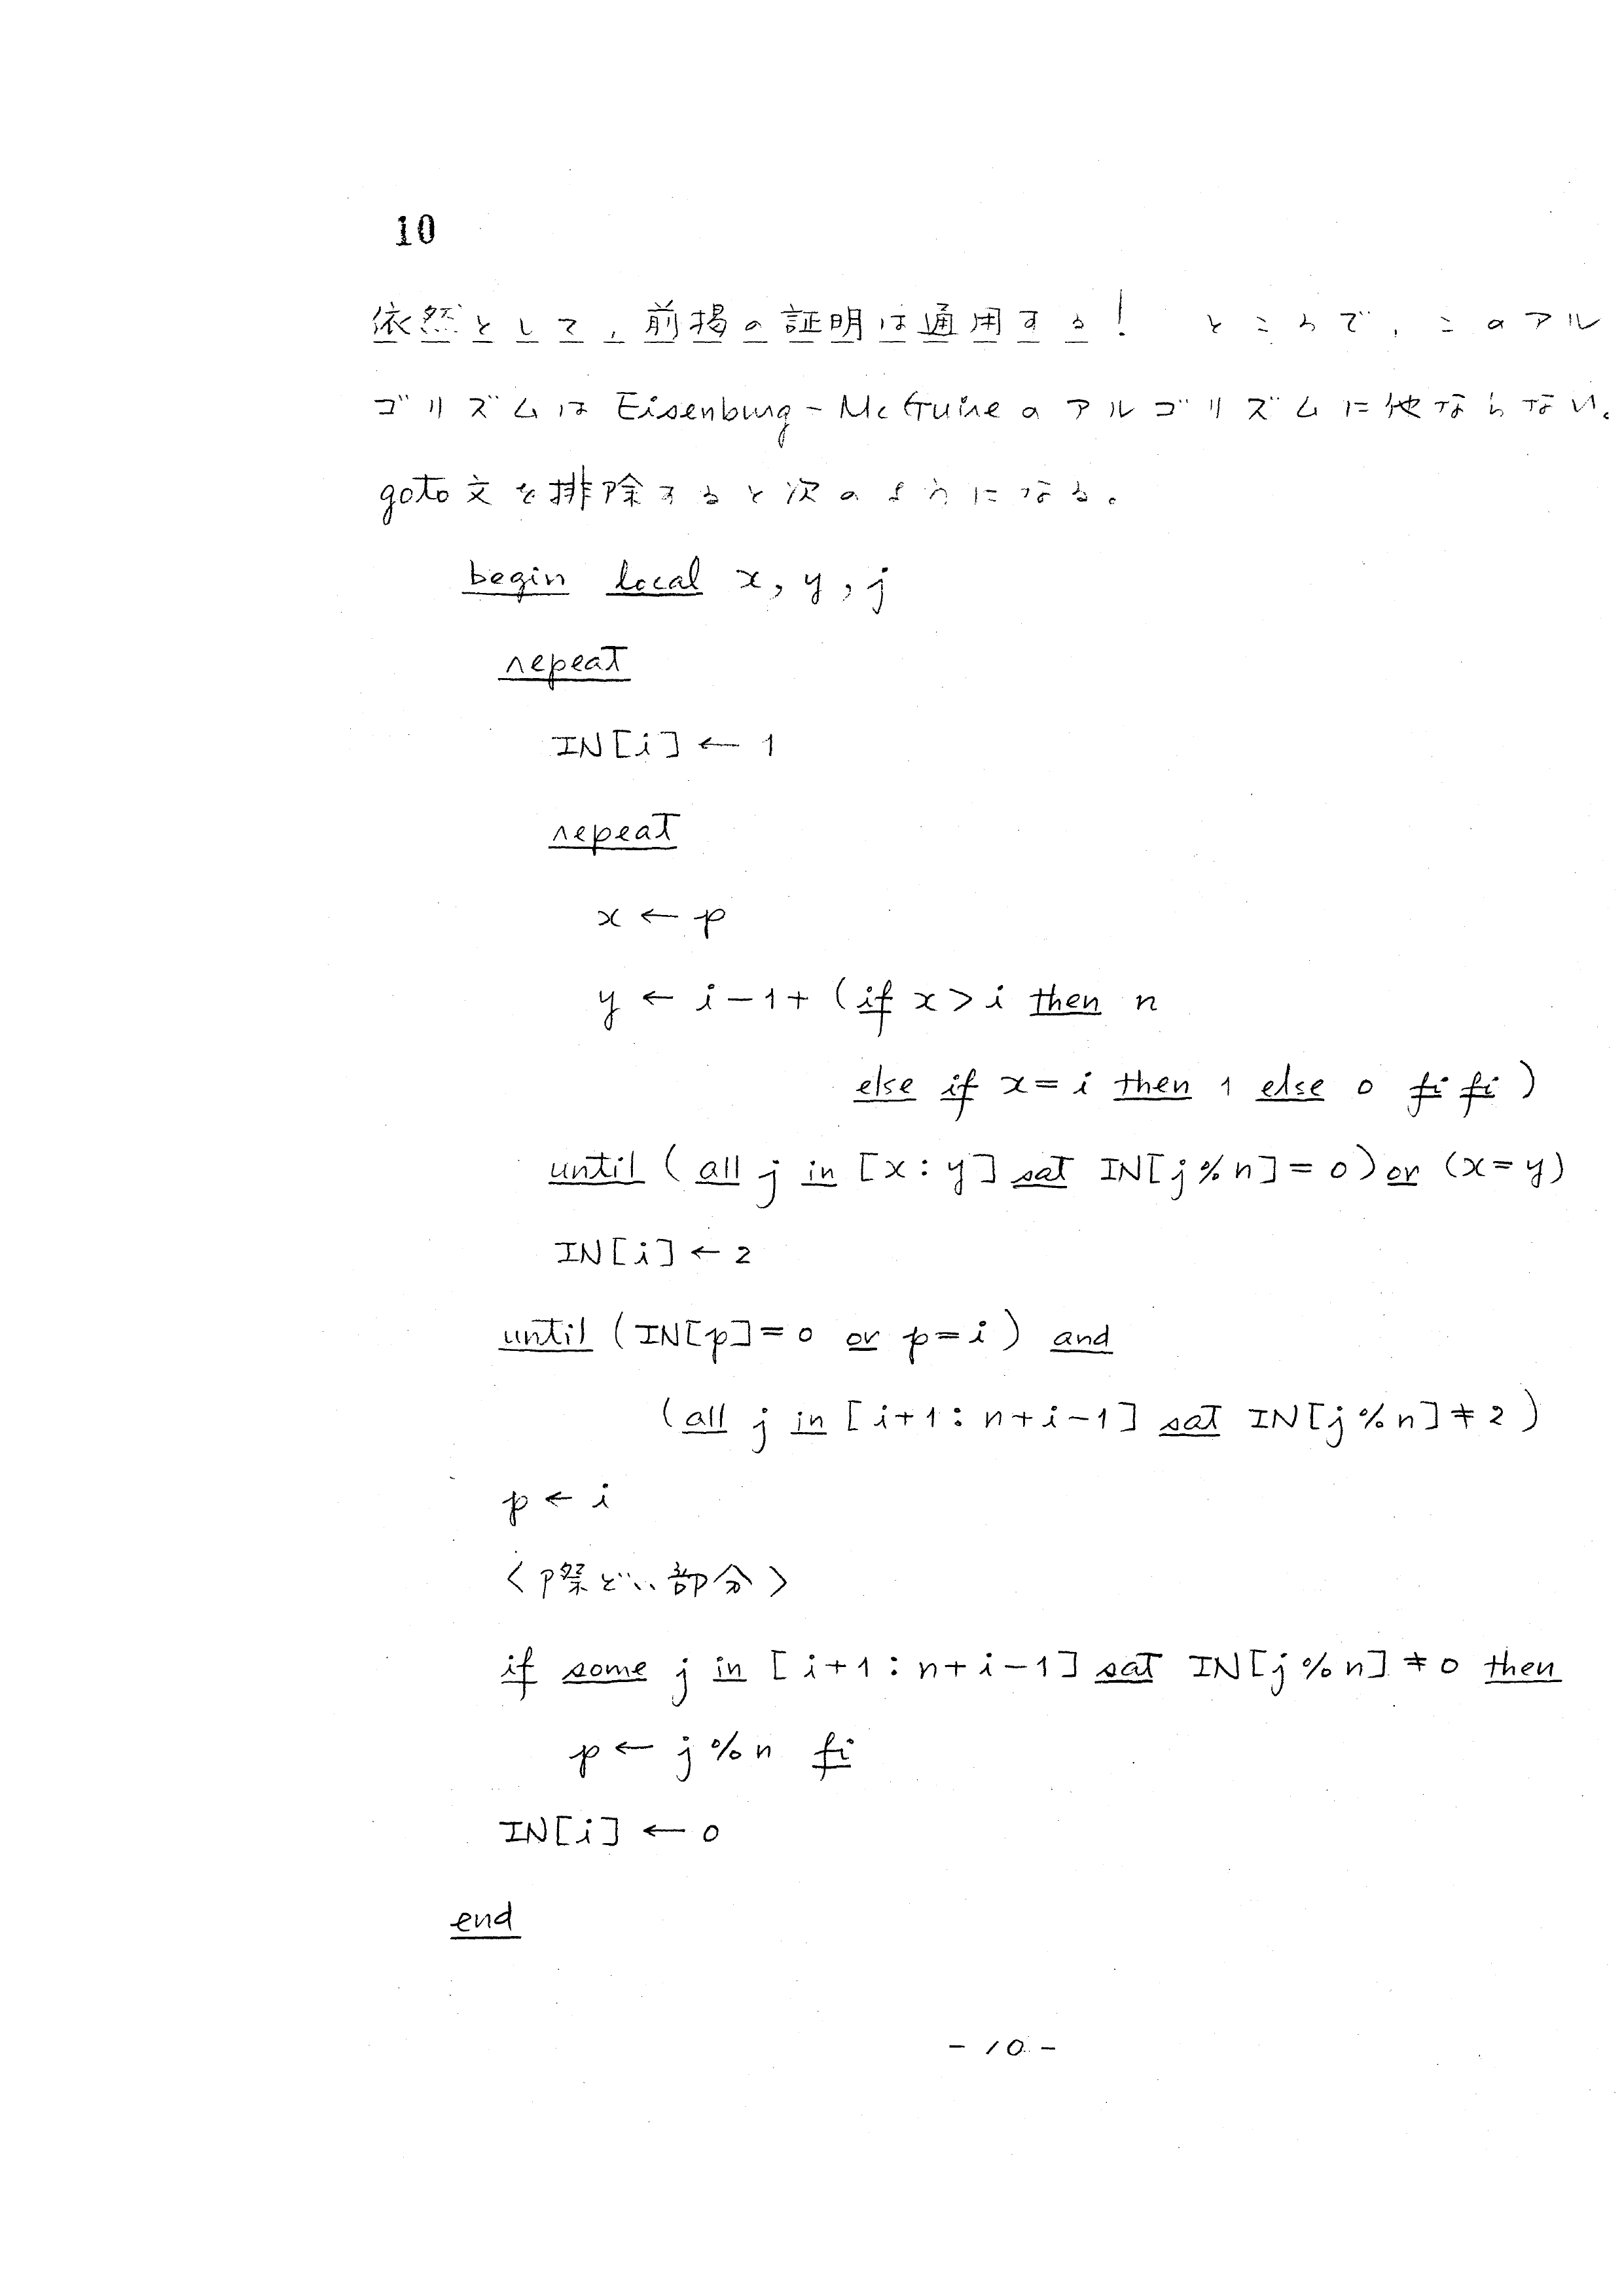 10
依然として,前掲の証明は通用する! ところで,このアル
ゴリズムは Eisenburg-McGuire のアルゴリズムに他ならない。
goto文を排除すると次のようになる。
begin local x, y, j
repeat
IN[i] ← 1
repeat
x ← p
y ← i-1+ (if x>i then n
else if x=i then 1 else 0 fi fi)
until (all j in [x:y] sat IN[j%n]=0) or (x=y)
IN[i] ← 2
until (IN[p]=0 or p=i) and
(all j in [i+1:n+i-1] sat IN[j%n]≠2)
p ← i
<際どい部分>
if some j in [i+1:n+i-1] sat IN[j%n]≠0 then
p ← j%n fi
IN[i] ← 0
end
- 10 -